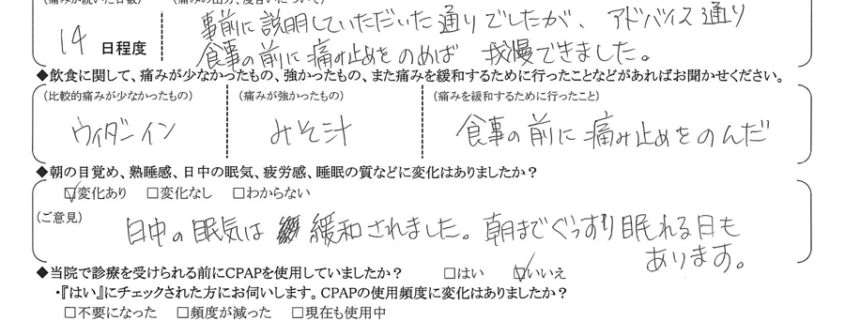 (痛みが続いた日数) (痛みの出方、度合いについて)
14 日程度 事前に説明していただいた通りでしたが、アドバイス通り
食事の前に痛み止めをのめば 我慢できました。
◆飲食に関して、痛みが少なかったもの、強かったもの、また痛みを緩和するために行ったことなどがあればお聞かせください。
(比較的痛みが少なかったもの) (痛みが強かったもの) (痛みを緩和するために行ったこと)
ウィダーイン みそ汁 食事の前に痛み止めをのんだ
◆朝の目覚め、熟睡感、日中の眠気、疲労感、睡眠の質などに変化はありましたか？
☑変化あり □変化なし □わからない
(ご意見) 日中の眠気は 緩和されました。朝までぐっすり眠れる日も
あります。
◆当院で診療を受けられる前にCPAPを使用していましたか？ □はい ☑いいえ
・『はい』にチェックされた方にお伺いします。CPAPの使用頻度に変化はありましたか？
□不要になった □頻度が減った □現在も使用中